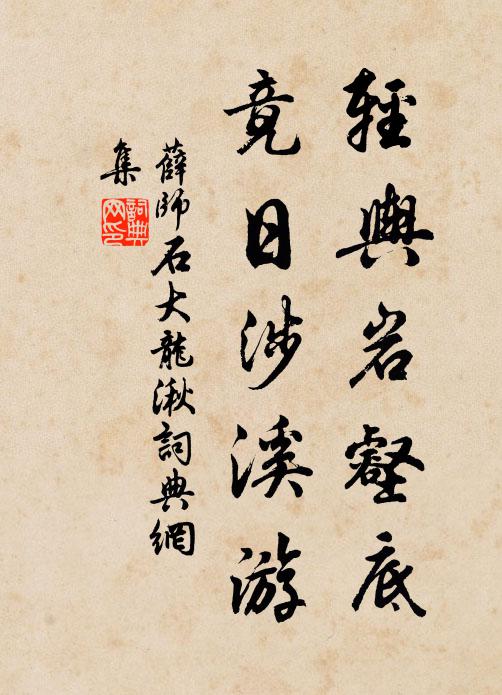 輕輿岩壑底
竟日涉溪游
薛師石大龍湫詞典網
集
詞典
网印